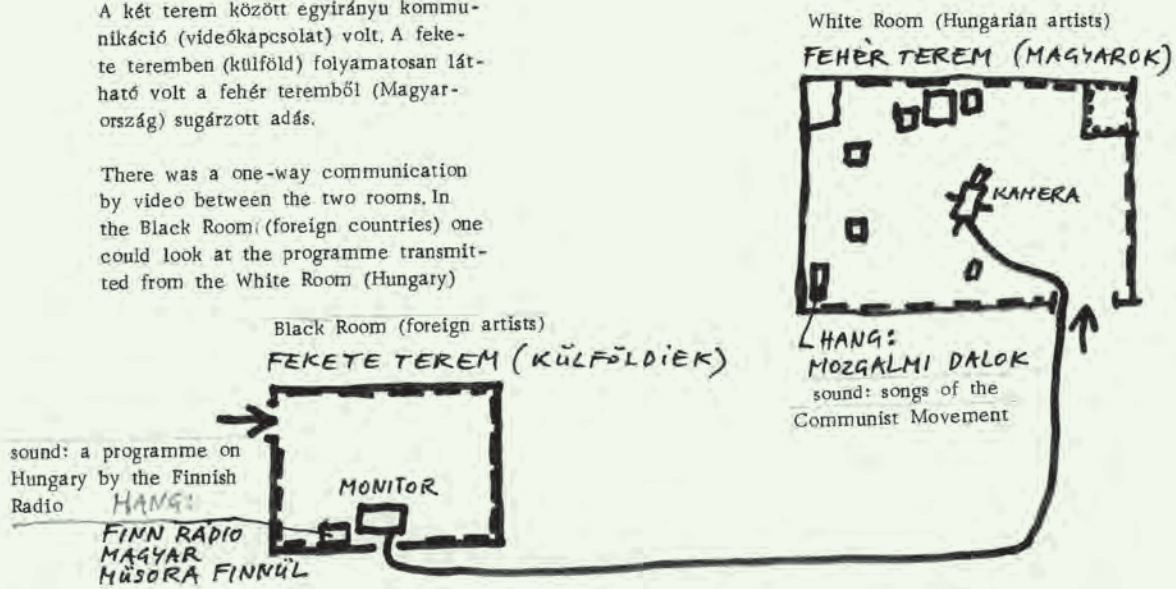 A két terem között egyirányu kommu-
nikáció (videókapcsolat) volt. A feke-
te teremben (külföld) folyamatosan lát-
ható volt a fehér teremből (Magyar-
ország) sugárzott adás.
There was a one-way communication
by video between the two rooms. In
the Black Room (foreign countries) one
could look at the programme transmit-
ted from the White Room (Hungary)
White Room (Hungarian artists)
FEHÉR TEREM (MAGYAROK)
KAMERA
HANG:
MOZGALMI DALOK
sound: songs of the
Communist Movement
Black Room (foreign artists)
FEKETE TEREM (KÜLFÖLDIEK)
MONITOR
sound: a programme on
Hungary by the Finnish
Radio
HANG:
FINN RÁDIO
MAGYAR
MŰSORA FINNÜL